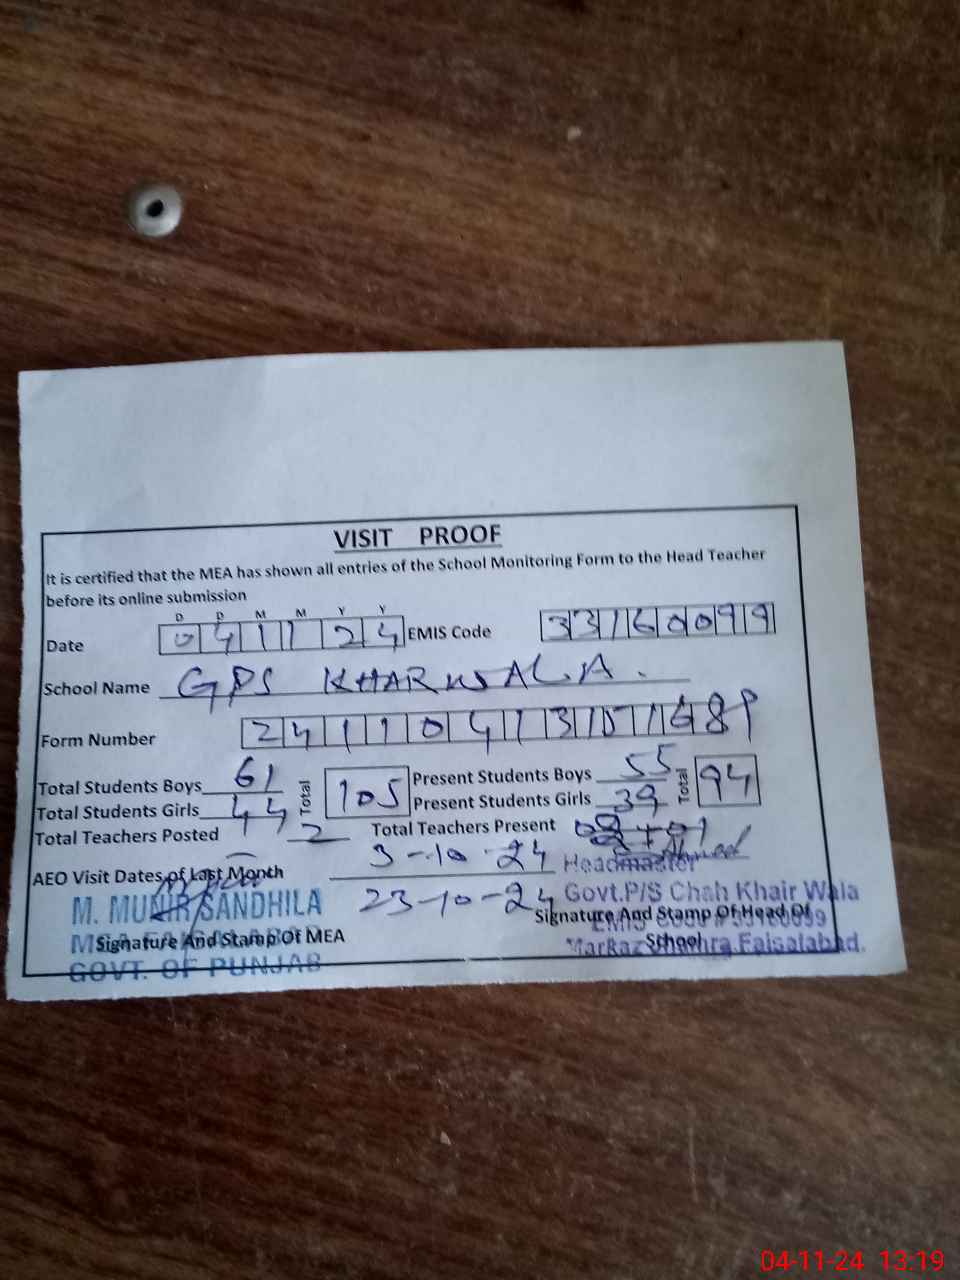 VISIT PROOF
It is certified that the MEA has shown all entries of the School Monitoring Form to the Head Teacher
before its online submission
D D M M Y Y
Date 041124 EMIS Code 33160099
School Name GPS KHARWALA.
Form Number 24110413151689
Total Students Boys 61 Total 105 Present Students Boys 55 Total 94
Total Students Girls 44 Present Students Girls 39
Total Teachers Posted 2 Total Teachers Present
AEO Visit Dates of Last Month 3-10-24
23-10-24
Headmaster
Govt.P/S Chah Khair Wala
EMIS Code #33160099
Markaz Faisalabad.
Signature And Stamp Of Head Of
School
M. MUNIR SANDHILA
MEA FAISALABAD
GOVT. OF PUNJAB
Signature And Stamp Of MEA
04-11-24 13:19